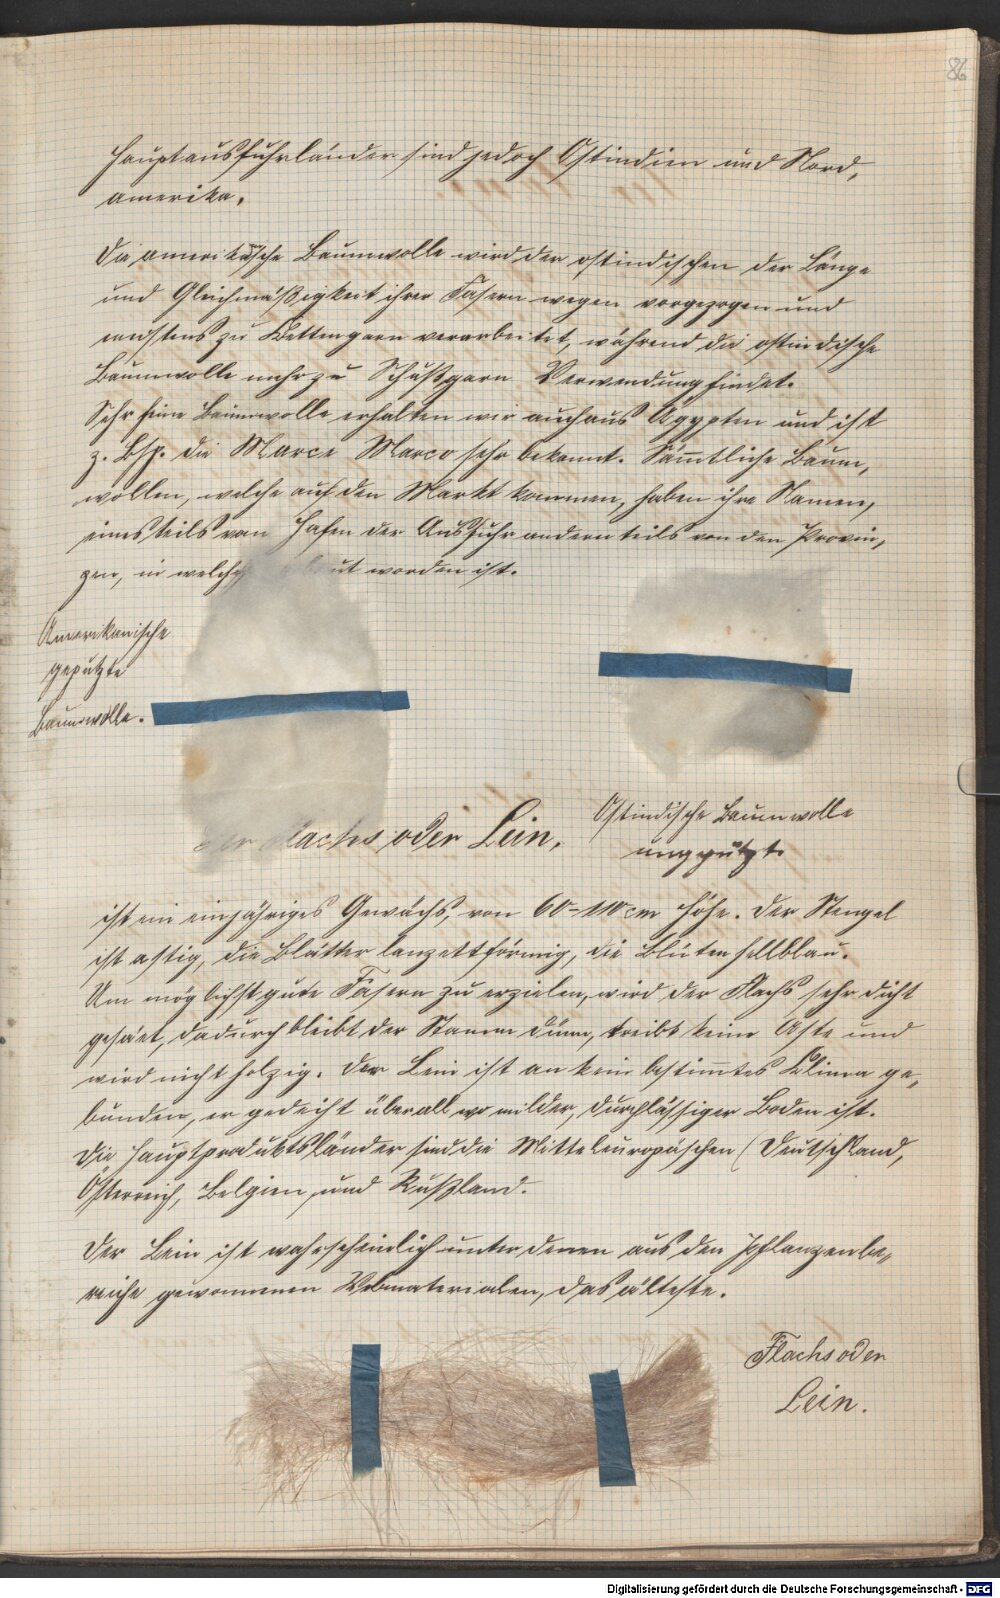 86
Hauptausfuhrländer sind jedoch Ostindien und Nord,
amerika.
Die amerikanische Baumwolle wird der ostindischen der Länge
und Gleichmäßigkeit ihrer Fasern wegen vorgezogen und
meistens zu Kettengarn verarbeitet, während die ostindische
Baumwolle mehr zu Schußgarn Verwendung findet.
Sehr feine Baumwolle erhalten wir auch aus Ägypten und ist
z. Bsp. die Marce Marco sehr bekannt. Sämtliche Baum,
wollen, welche auf den Markt kommen, haben ihre Namen,
einesteils vom Hafen der Ausfuhr andernteils von den Provin,
zen, in welchen gebaut worden ist.
Amerikanische
geputzte
Baumwolle.
Ostindische Baumwolle
ungeputzt.
Der Flachs oder Lein,
ist ein einjähriges Gewächs, von 60-110 cm Höhe. Der Stengel
ist astig, die Blätter lanzettförmig, die Blüten hellblau.
Um möglichst gute Fasern zu erzielen, wird der Flachs sehr dicht
gesäet, dadurch bleibt der Stamm dünn, treibt keine Äste und
wird nicht holzig. Der Lein ist an kein bestimmtes Klima ge„
bunden, er gedeiht überall wo milder, durchlässiger Boden ist.
Die Hauptproduktsländer sind die Mitteleuropäischen (Deutschland,
Österreich, Belgien, und Rußland.
Der Lein ist wahrscheinlich unter denen aus den Pflanzenbe„
reiche gewonnenen Webmaterialen, das älteste.
Flachs oder
Lein.
Digitalisierung gefördert durch die Deutsche Forschungsgemeinschaft - DFG